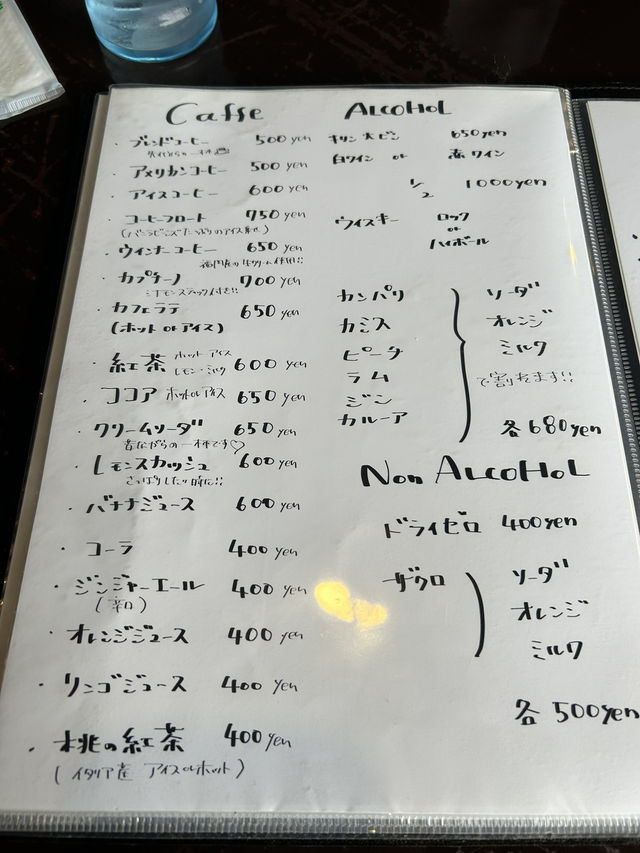 Caffe
・ブレンドコーヒー 500 yen
・アメリカンコーヒー 500 yen
・アイスコーヒー 600 yen
・コーヒーフロート 750 yen
(バニラビーンズたっぷりのアイス乗せ)
・ウィンナーコーヒー 650 yen
福岡産の生クリーム使用!!
・カプチーノ 700 yen
シナモンスティック付き!!
・カフェラテ 650 yen
(ホット or アイス)
・紅茶 ホット アイス レモン・ミルク 600 yen
・ココア ホット or アイス 650 yen
・クリームソーダ 650 yen
昔ながらの一杯です♡
・レモンスカッシュ 600 yen
さっぱりしたい時に!!
・バナナジュース 600 yen
・コーラ 400 yen
・ジンジャーエール 400 yen
(辛口)
・オレンジジュース 400 yen
・リンゴジュース 400 yen
・桃の紅茶 400 yen
(イタリア産 アイス or ホット)
ALCOHOL
キリン大ビン 650 yen
白ワイン or 赤ワイン
1/2 1000 yen
ウィスキー ロック
or
ハイボール
カンパリ
カミス
ピーチ
ラム
ジン
カルーア
ソーダ
オレンジ
ミルク
で割れます!!
各 680 yen
Non ALCOHOL
ドライゼロ 400 yen
ザクロ
ソーダ
オレンジ
ミルク
各 500 yen